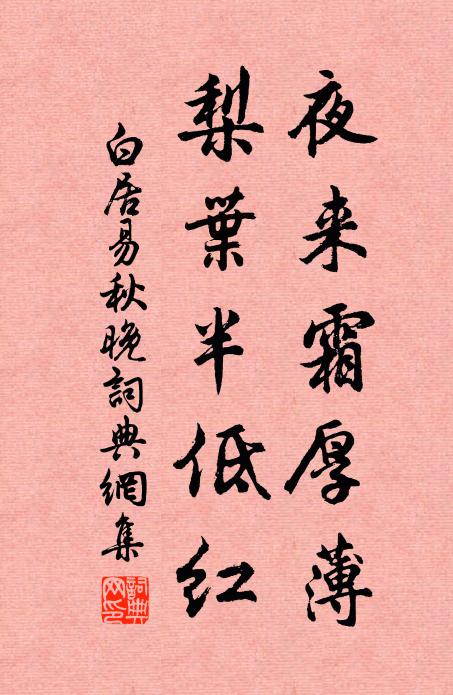 夜来霜厚薄
梨葉半低红
白居易秋晚詞典網集
詞典网印